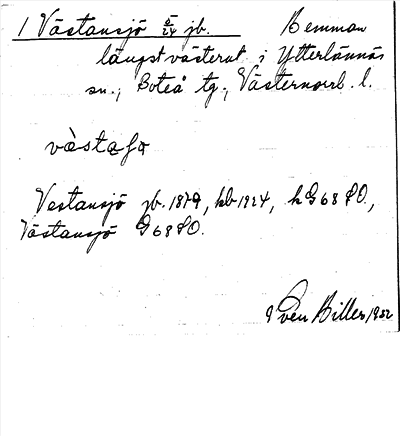 1 Västansjö 5/24 jb. Hemman
längst västerut i Ytterlännäs
sn., Boteå tg., Västernorrl. l.
vä̀staʃø
Vestansjö jb. 1879, kb 1924, k G68 SO.,
Västansjö G68SO.
Sven Billes 1932